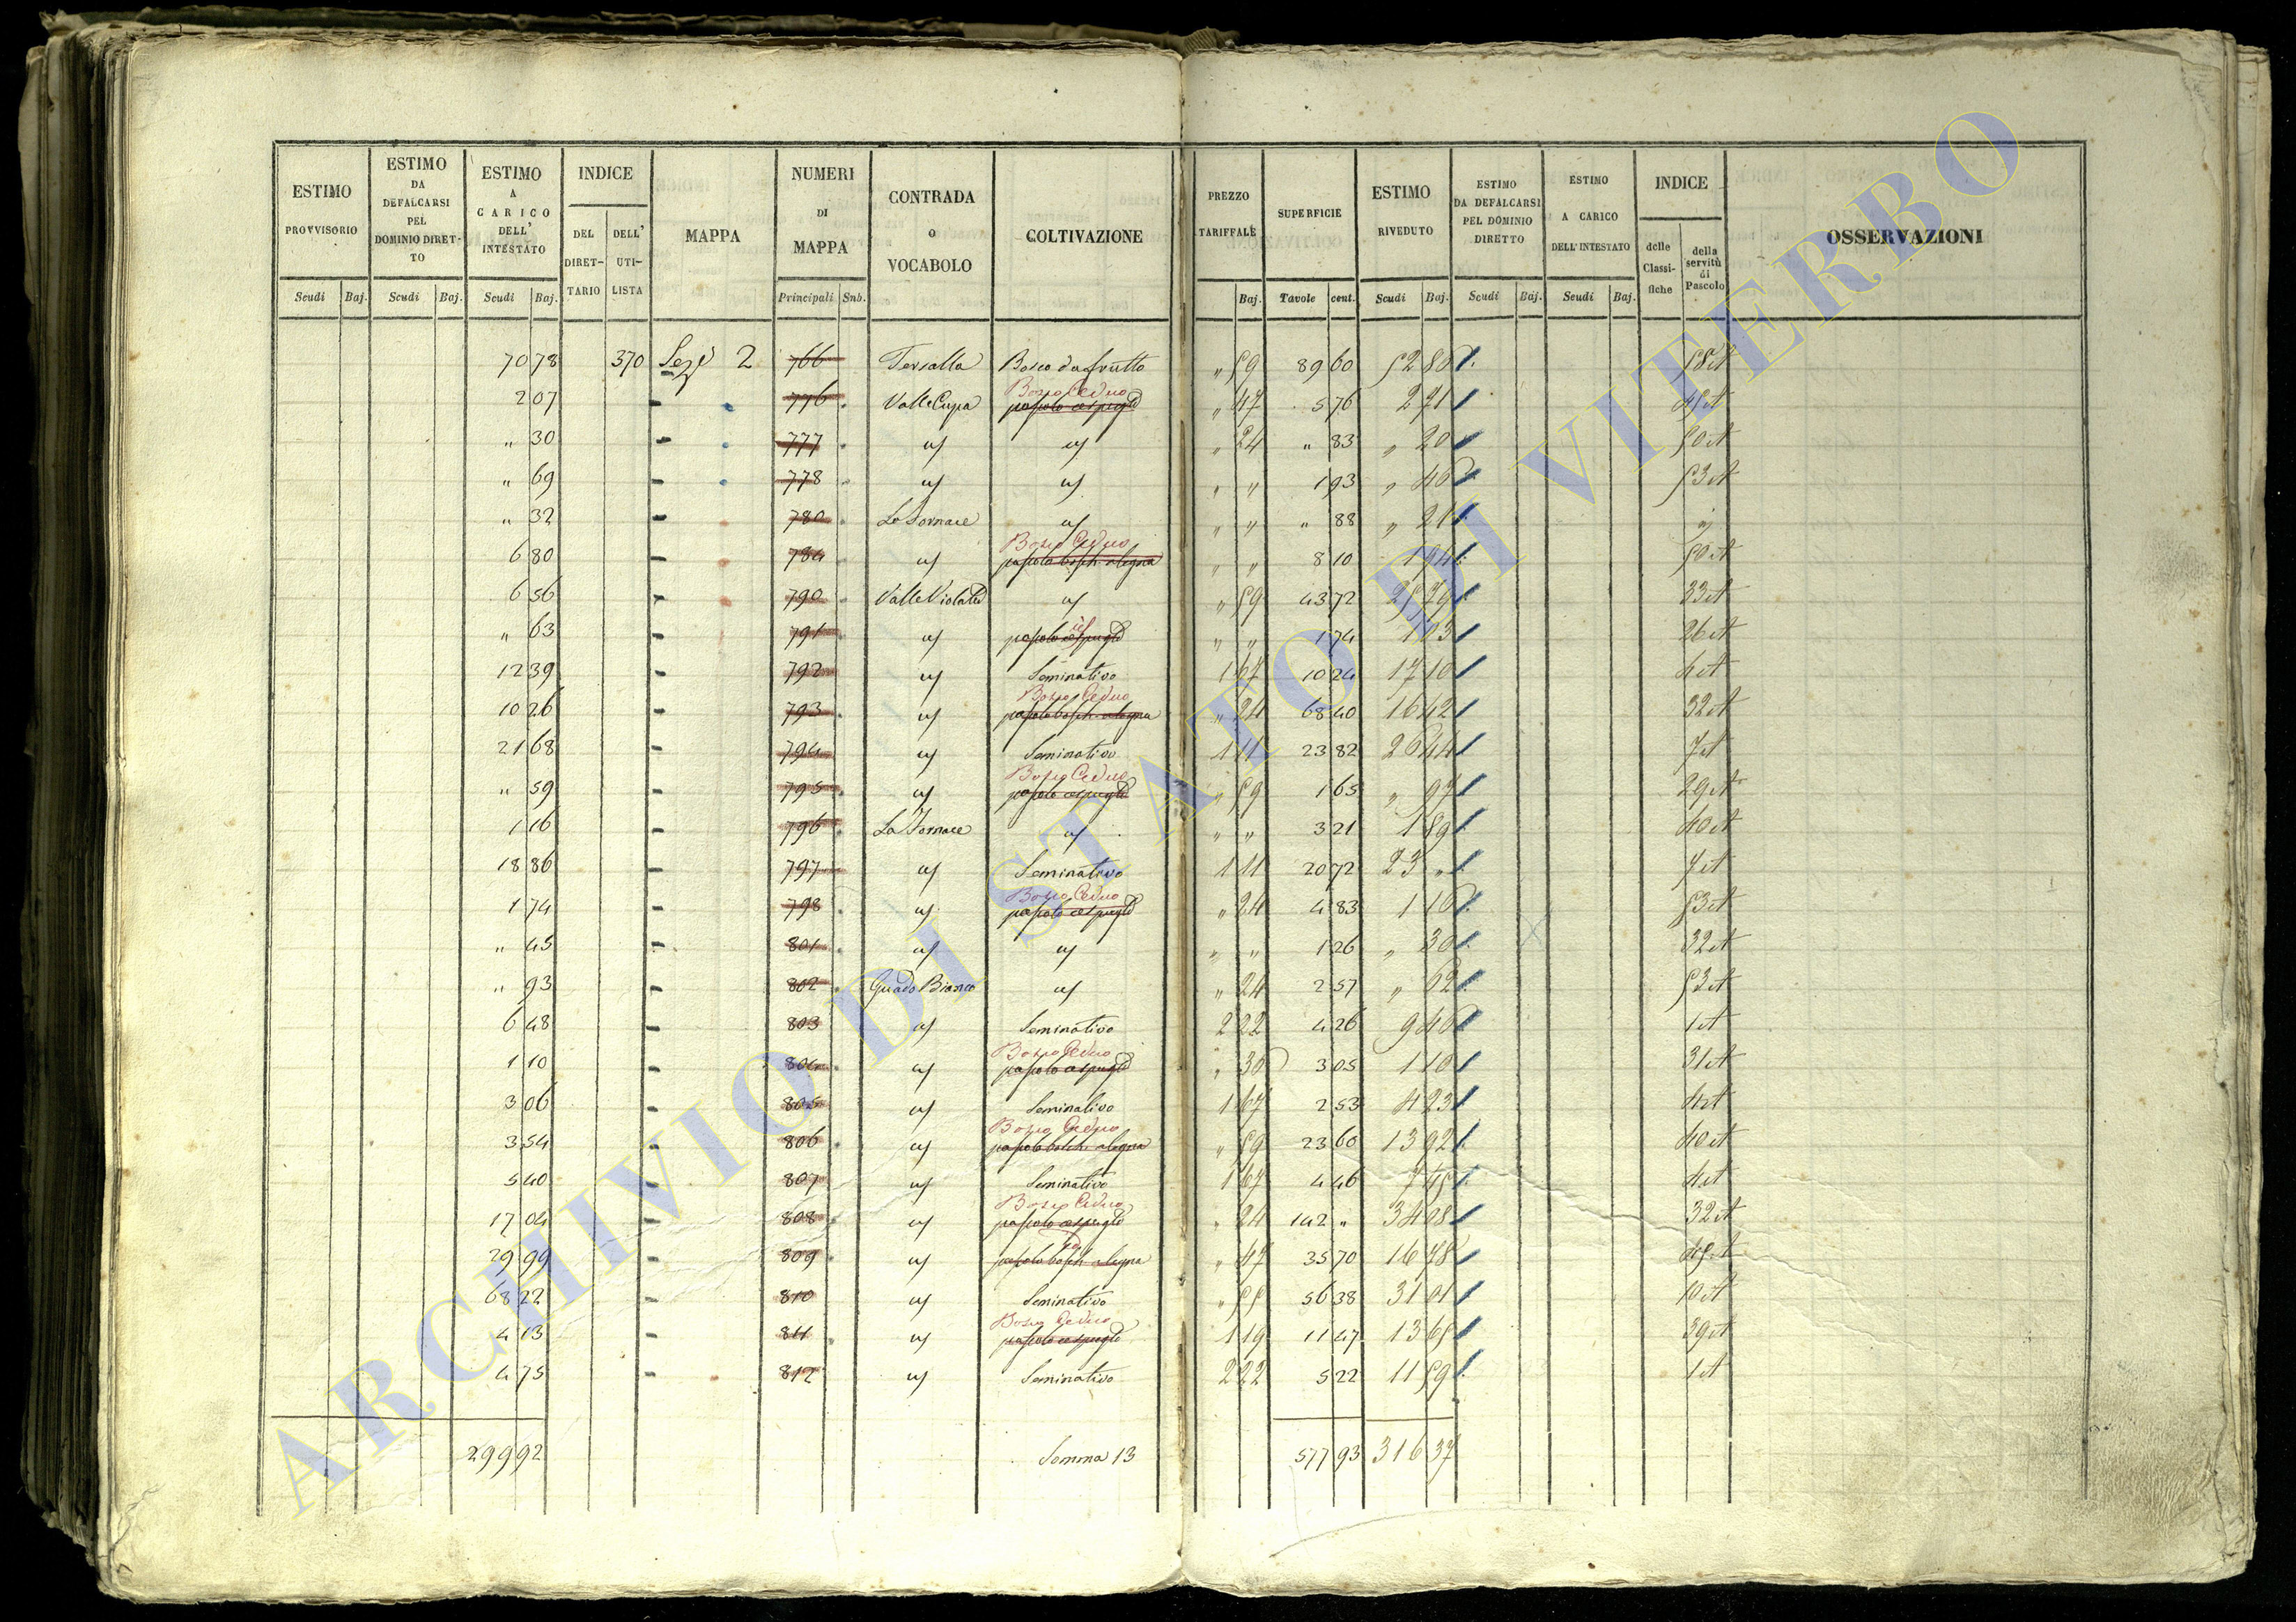 ESTIMO PROVVISORIO | ESTIMO DA DEFALCARSI PEL DOMINIO DIRETTO | ESTIMO A CARICO DELL' INTESTATO | INDICE DEL DIRETTARIO | DELL' UTILISTA | MAPPA | NUMERI DI MAPPA | CONTRADA O VOCABOLO | COLTIVAZIONE | PREZZO TARIFFALE | SUPERFICIE | ESTIMO RIVEDUTO | ESTIMO DA DEFALCARSI PEL DOMINIO DIRETTO | ESTIMO A CARICO DELL'INTESTATO | INDICE delle Classifiche | della servitù di Pascolo | OSSERVAZIONI
Scudi Baj. | Scudi Baj. | Scudi Baj. | Principali Snb. | Baj. | Tavole cent. | Scudi Baj. | Scudi Baj. | Scudi Baj.
70 78 370 Sez. 2 766 Tersalla Bosco da frutto " 59 89 60 52 86 58
2 07 776 Valle Cupa Bosco Ceduo pascolo cespugto " 47 5 76 2 71
" 30 777 " 24 " 83 " 20 50
" 69 778 " " 1 93 " 46 53
" 32 780 La Fornace " " " 88 " 21
6 80 784 Bosco Ceduo pascolo bosch. a legna " " 8 10 1 94 50
6 56 790 Valle Violata " 59 43 72 25 79 33
" 63 791 pascolo cespugto " " 1 74 1 03 26
12 39 792 Seminativo 1 67 10 24 17 10 4
10 26 793 Bosco Ceduo pascolo bosch. a legna " 24 68 40 16 42 32
21 68 794 Seminativo 1 11 23 82 26 44 7
" 59 795 Bosco Ceduo pascolo cespugto " 59 1 65 " 97 29
1 16 796 La Fornace " " 3 21 1 89 40
18 86 797 Seminativo 1 11 20 72 23 " 7
1 74 798 Bosco Ceduo pascolo cespugto " 24 4 83 1 16 53
" 45 801 " " 1 26 " 30 32
" 93 802 Guado Bianco " 24 2 57 " 62 52
6 48 803 Seminativo 2 22 4 26 9 46 1
1 10 804 Bosco Ceduo pascolo cespugto " 36 3 05 1 10 31
3 06 805 Seminativo 1 67 2 53 4 23 4
3 54 806 Bosco Ceduo pascolo bosch. a legna " 59 23 60 13 92 40
5 40 807 Seminativo 1 67 4 46 7 45 4
17 04 808 Bosco Ceduo pascolo cespugto " 24 142 " 34 08 32
29 99 809 pascolo bosch. a legna " 47 35 70 16 78
68 22 810 Seminativo " 55 56 38 31 01 10
4 13 811 Bosco Ceduo pascolo cespugto 1 19 11 47 13 65 39
4 75 812 Seminativo 2 22 5 22 11 59 1
299 92 Somma 13 577 93 316 37
ARCHIVIO DI STATO DI VITERBO